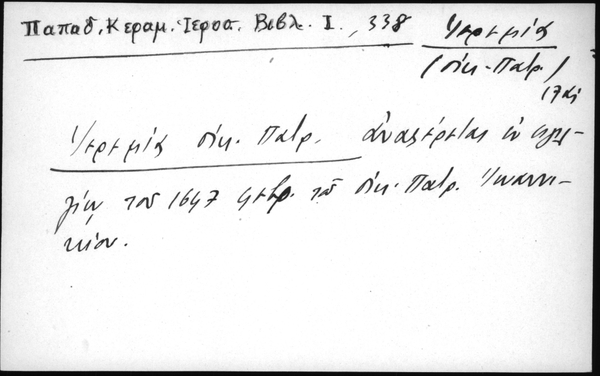 Παπαδ. Κεραμ. Ἱεροσ. Βιβλ. Ι., 338
Ἱερεμίας
(οἰκ. Πατρ.)
17 αἰ
Ἱερεμίας οἰκ. Πατρ. ἀναφέρεται ἐν
τοῦ 1647 τοῦ οἰκ. Πατρ. Ἰωαννι-
κίου.